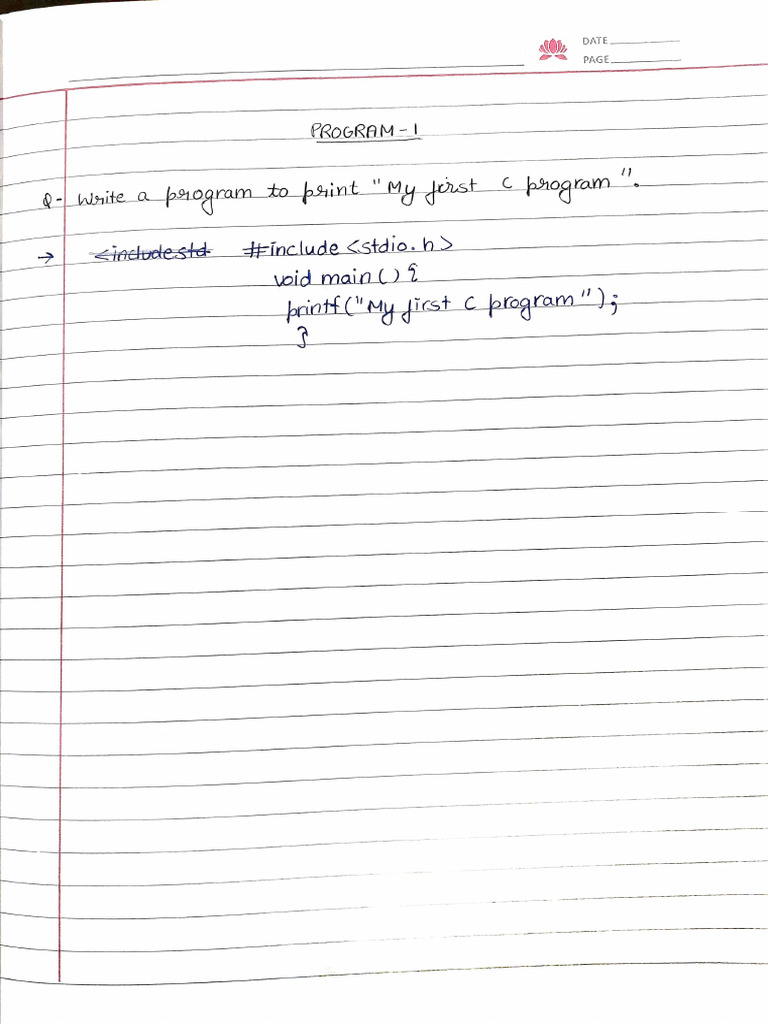 DATE
PAGE
PROGRAM-1
Q- Write a program to print "My first C program".
→ <includestd #include<stdio.h>
void main() {
printf("My first C program");
}